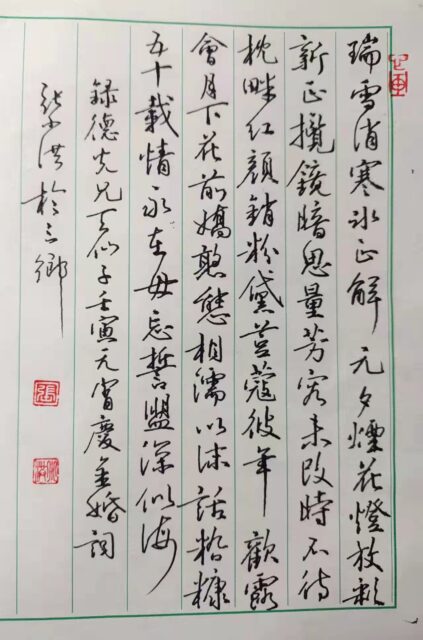 瑞雪消寒冰正解 元夕煙花燈放彩
新正攬鏡暗思量芳容未改時不待
枕畔紅顏銷粉黛荳蔻彼年 歡露
會月下花前嬌憨態相濡以沫話糟糠
五十載情永在毋忘誓盟深似海
録德光兄天仙子壬寅元宵慶金婚詞
張洪於三鄉
張